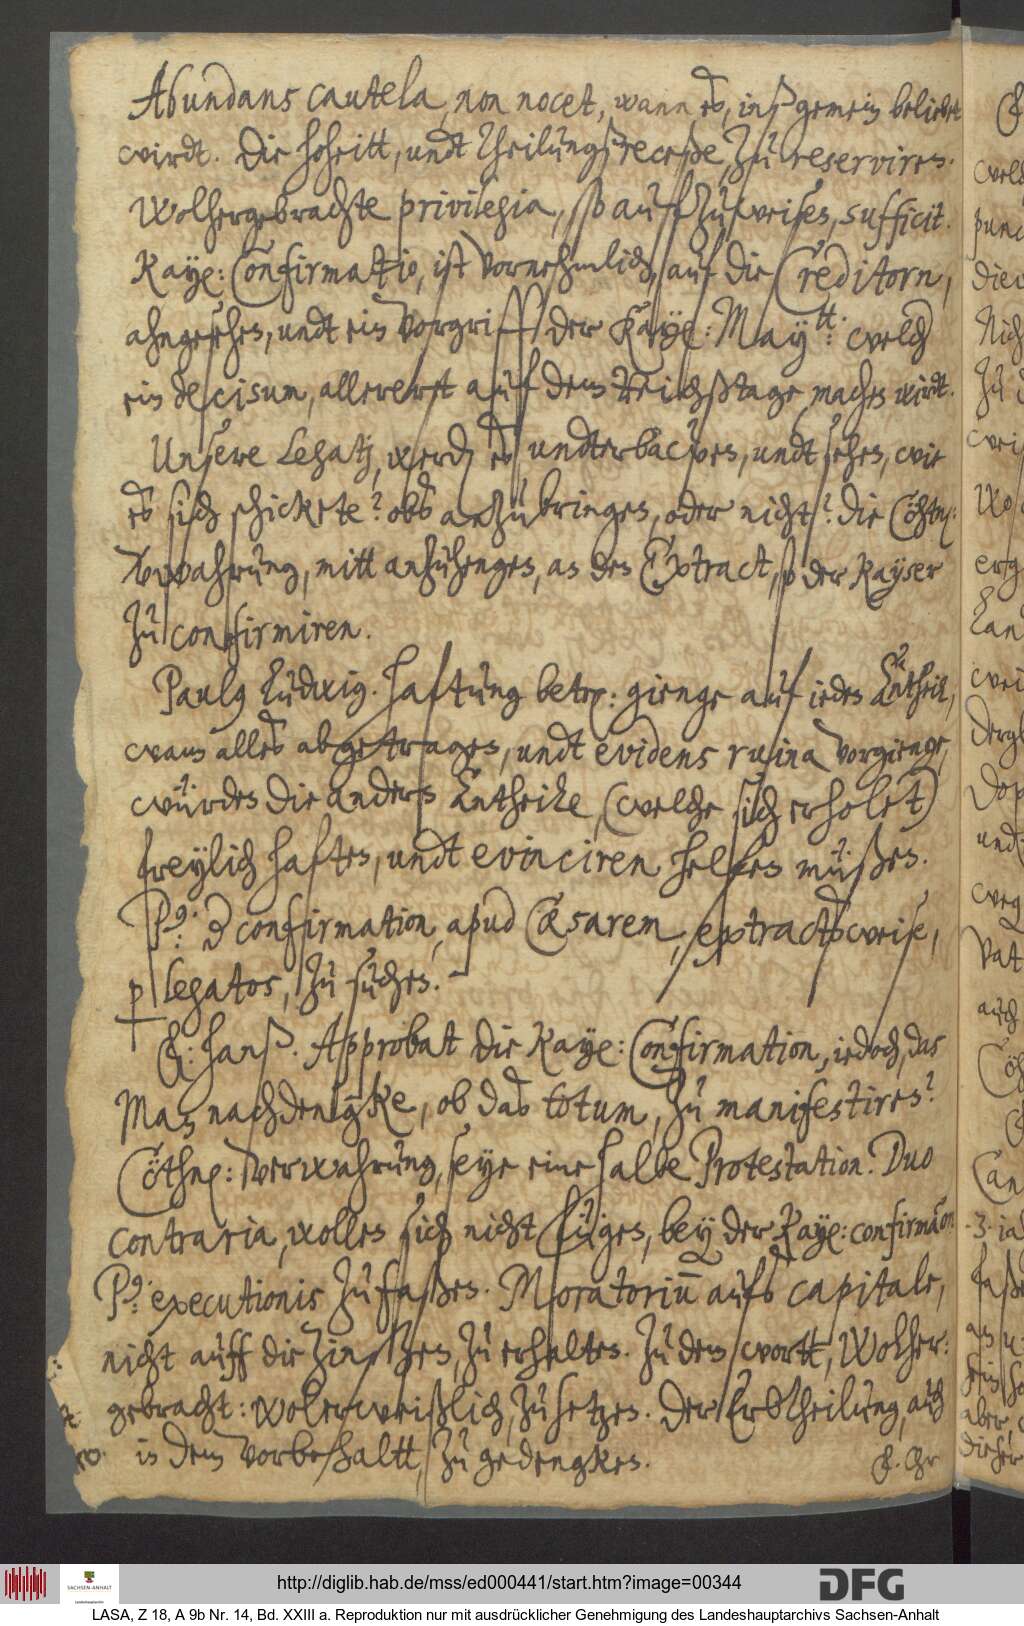 Abundans cautela, non nocet, wann es, inß gemein beliebet
wirdt. Die hoheitt, undt theilungßreceße, zu reserviren.
Wolhergebrachte privilegia, so auf zu weisen, sufficit.
Kaye: Confirmatio, ist vornehmlich, auf die Creditorn,
ahngesehen, undt ein vorgriff der Kaye: Maytt: welch
ein decisum, allererst auf dem Reichßtage, machen wirdt.
Unsere Legatj, werdn es, undterbawen, undt sehen, wie
es sich schickete? obs anzubringen, oder nicht? die Cöthn:
verwahrung, mitt anzuhengen, an den Extract, so der Kayser
zu confirmiren.
Paulg Ludwig. Haftung betr: gienge auf ieden Antheil,
wann alles abgetragen, undt evidens ruina vorgienge,
würden die andern Antheile, (welche sich erholet)
freylich haften, undt evinciren helfen müßen.
Pg: confirmation, apud Cæsarem, extractsweise,
p legatos, zu suchen.
H: Hanß. Approbat die Kaye: Confirmation, iedoch, das
Man nachdencke, ob das totum, zu manifestiren?
Cöthn: verwahrung, seye eine halbe Protestation. Duo
contraria, wollen sich nicht fügen, bey der Kaye: confirmaon
Pg: executionis zu faßen. Moratoriū aufs capitale,
nicht auff die Zinsen, zu erhalten. Zu dem wortt, Wolher-
gebracht: wolerweißlich, zu setzen. Der Erbtheilung, auch
in dem vorbehaltt, zu gedencken.
F. Chr
http://diglib.hab.de/mss/ed000441/start.htm?image=00344
SACHSEN-ANHALT
Landeshauptarchiv
DFG
LASA, Z 18, A 9b Nr. 14, Bd. XXIII a. Reproduktion nur mit ausdrücklicher Genehmigung des Landeshauptarchivs Sachsen-Anhalt